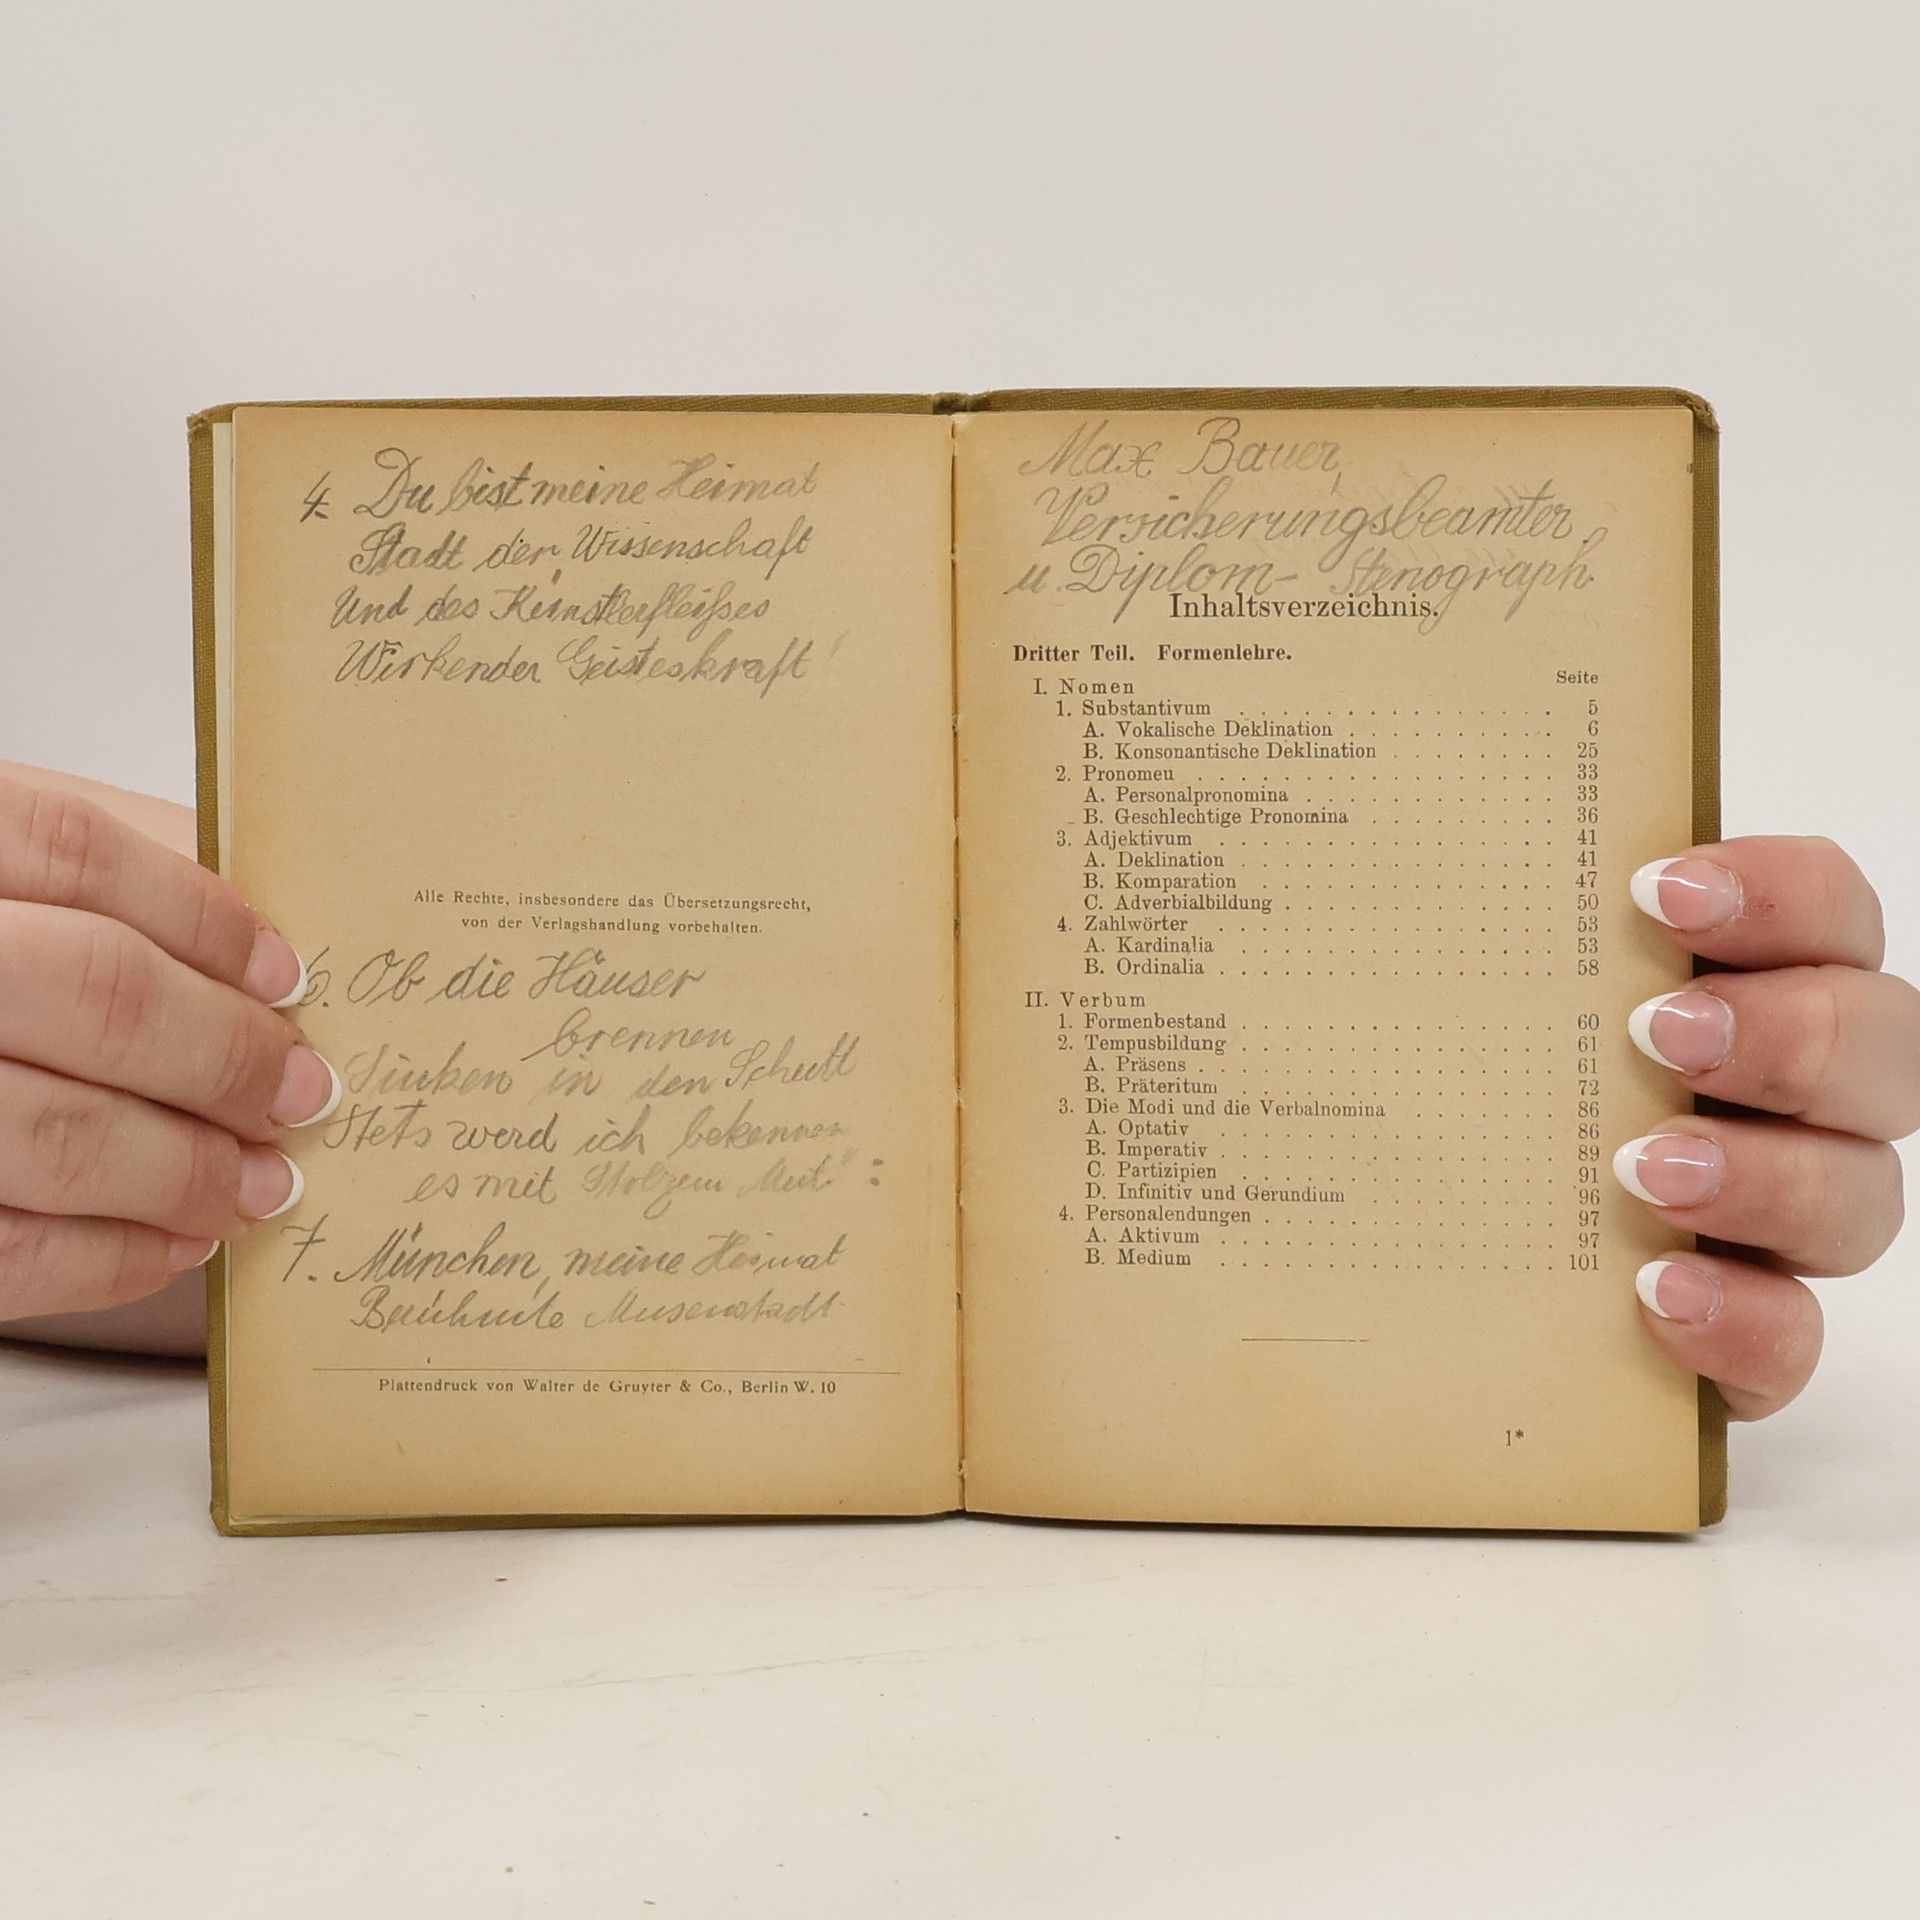 4. Du bist meine Heimat
Stadt der Wissenschaft
Und des Künstlerfleißes
Wirkender Geisteskraft!
Alle Rechte, insbesondere das Übersetzungsrecht,
von der Verlagshandlung vorbehalten.
6. Ob die Häuser
brennen
Sinken in den Schutt
Stets werd ich bekennen
es mit Stolzem Mut":
7. München, meine Heimat
Berühmte Musenstadt
Plattendruck von Walter de Gruyter & Co., Berlin W. 10
Max Bauer,
Versicherungsbeamter
u. Diplom-Stenograph
Inhaltsverzeichnis.
Dritter Teil. Formenlehre.
Seite
I. Nomen
1. Substantivum . . . . . . . . . . . . . . . 5
A. Vokalische Deklination . . . . . . . . . . 6
B. Konsonantische Deklination . . . . . . . . 25
2. Pronomeu . . . . . . . . . . . . . . . . . 33
A. Personalpronomina . . . . . . . . . . . . 33
B. Geschlechtige Pronomina . . . . . . . . . 36
3. Adjektivum . . . . . . . . . . . . . . . . 41
A. Deklination . . . . . . . . . . . . . . . 41
B. Komparation . . . . . . . . . . . . . . 47
C. Adverbialbildung . . . . . . . . . . . . . 50
4. Zahlwörter . . . . . . . . . . . . . . . . 53
A. Kardinalia . . . . . . . . . . . . . . . 53
B. Ordinalia . . . . . . . . . . . . . . . . 58
II. Verbum
1. Formenbestand . . . . . . . . . . . . . . 60
2. Tempusbildung . . . . . . . . . . . . . . 61
A. Präsens . . . . . . . . . . . . . . . . . 61
B. Präteritum . . . . . . . . . . . . . . . 72
3. Die Modi und die Verbalnomina . . . . . . 86
A. Optativ . . . . . . . . . . . . . . . . 86
B. Imperativ . . . . . . . . . . . . . . . . 89
C. Partizipien . . . . . . . . . . . . . . . 91
D. Infinitiv und Gerundium . . . . . . . . . 96
4. Personalendungen . . . . . . . . . . . . . 97
A. Aktivum . . . . . . . . . . . . . . . . 97
B. Medium . . . . . . . . . . . . . . . . 101
1*